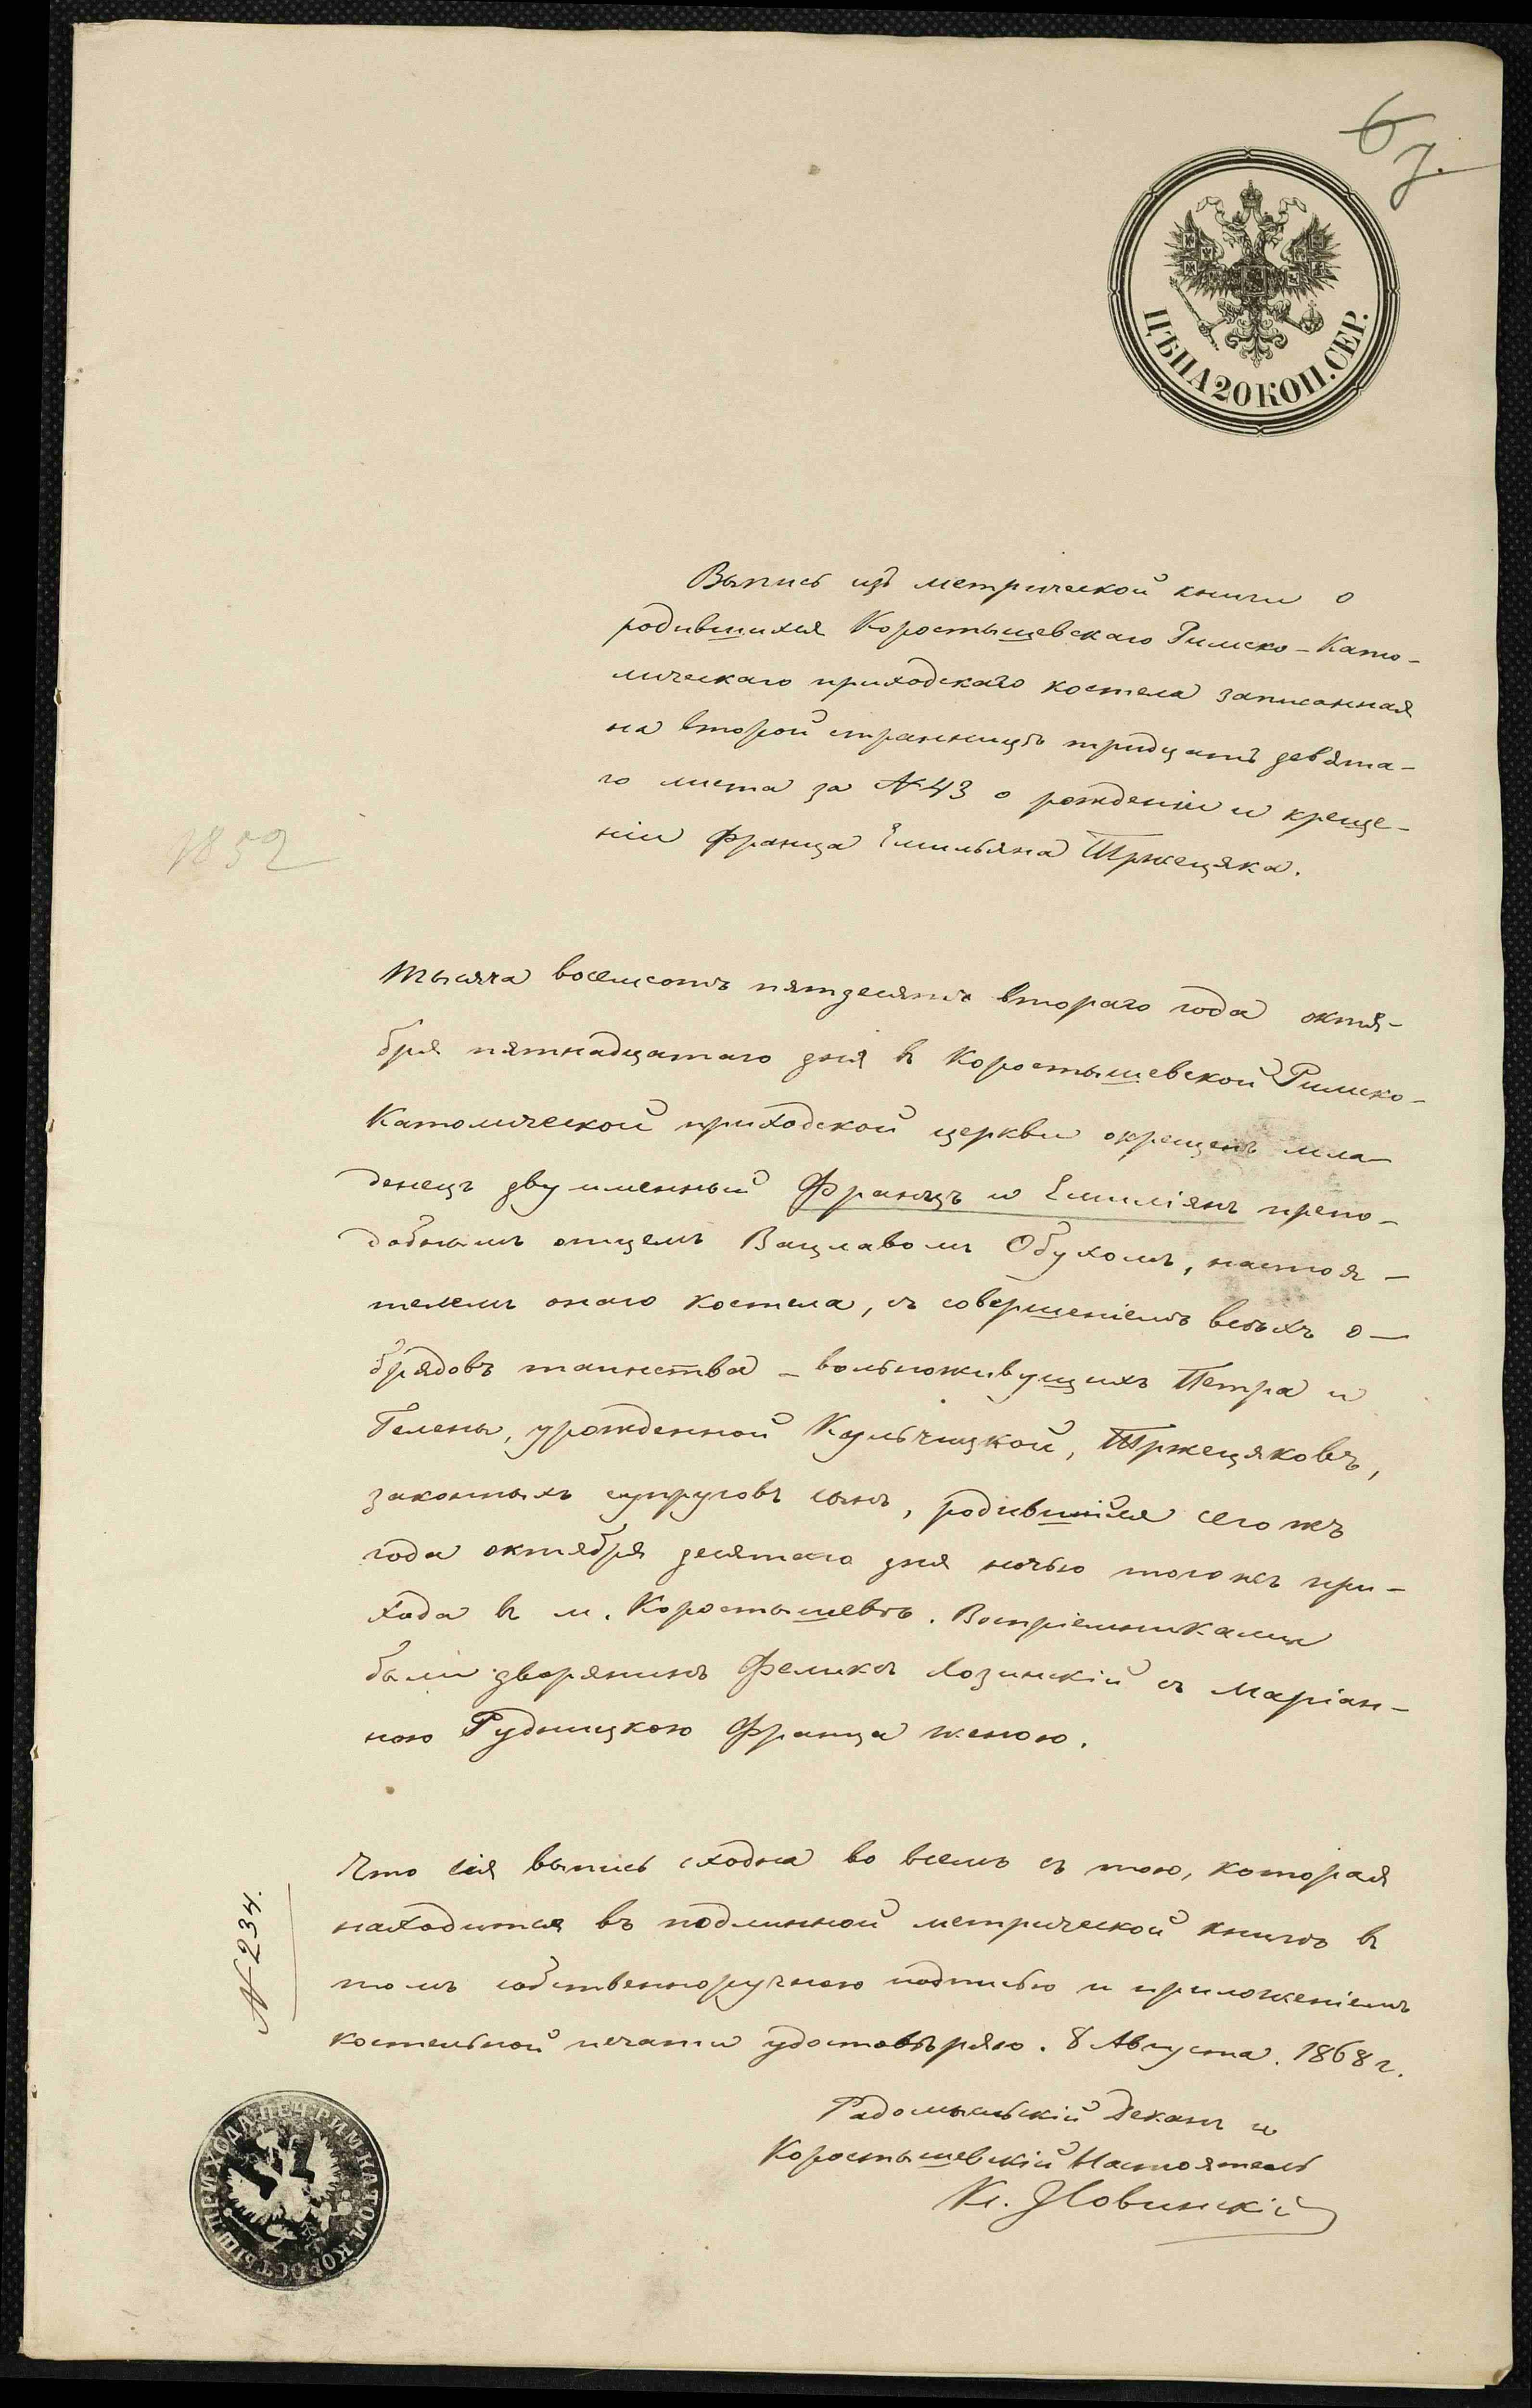 6
7.
ЦѢНА 20 КОП. СЕР.
Выпись изъ метрической книги о
родившихся Коростышевскаго Римско-Като-
лическаго приходскаго костела записанная
на второй странницѣ тридцать девята-
го листа за №43 о рожденіи и креще-
ніи Франца Емильяна Тржецяка.
1852
Тысяча восемсотъ пятдесятъ втораго года октя-
бря пятнадцатаго дня въ Коростышевской Римско-
Католической приходской церкви окрещенъ мла-
денецъ двуименный Францъ и Емиліянъ препо-
добнымъ отцемъ Вацлавомъ Обухомъ, настоя-
телемъ онаго костела, съ совершеніемъ всѣхъ о-
брядовъ таинства - вольноживущихъ Петра и
Гелены, урожденной Кульчицкой, Тржецяковъ,
законныхъ супруговъ сынъ, родившійся сего жъ
года октября десятаго дня ночью того жъ при-
хода въ м. Коростышевѣ. Воспріемниками
были дворянинъ Феликсъ Лозинскій съ Маріан-
ною Рудницкою Франца женою.
Что сія выпись сходна во всемъ съ тою, которая
находится въ подлинной метрической книгѣ въ
томъ собственноручною подписью и приложеніемъ
костельной печати удостовѣряю. 8 Августа. 1868 г.
№ 234.
Радомысльскій Деканъ и
Коростышевскій Настоятель
Кс. Новинскій
ПЕЧ. РИМ. КАТОЛ. КОРОСТЫШ. ПРИХОДА